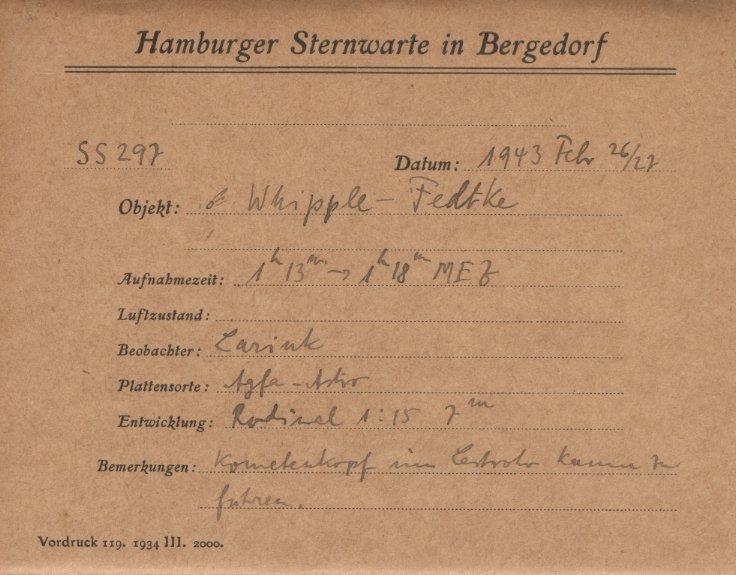 Hamburger Sternwarte in Bergedorf
SS 297
Datum: 1943 Febr 26/27
Objekt: ☄ Whipple – Fedtke
Aufnahmezeit: 1h 13m → 1h 18m MEZ
Luftzustand:
Beobachter: Larink
Plattensorte: Agfa-Astro
Entwicklung: Rodinal 1:15 7m
Bemerkungen: Kometenkopf im kaum zu
führen.
Vordruck 119. 1934 III. 2000.